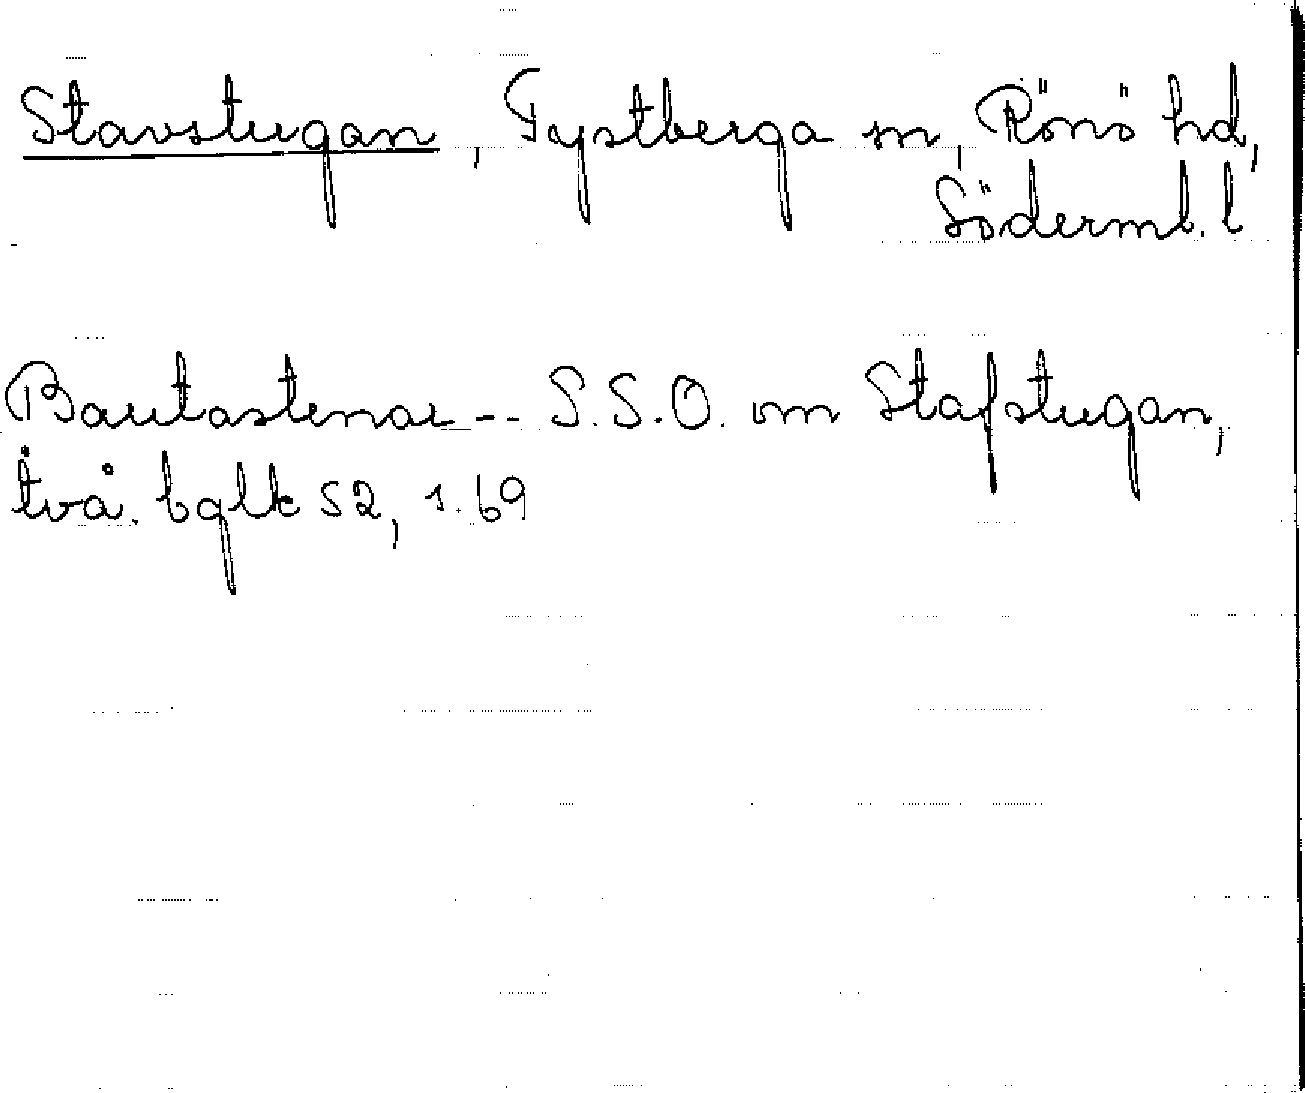 Stavstugan, Tystberga sn, Rönö hd,
Söderml. l
Bautastenar -- S.S.O. om Stafstugan,
två. bglk 52, s. 69